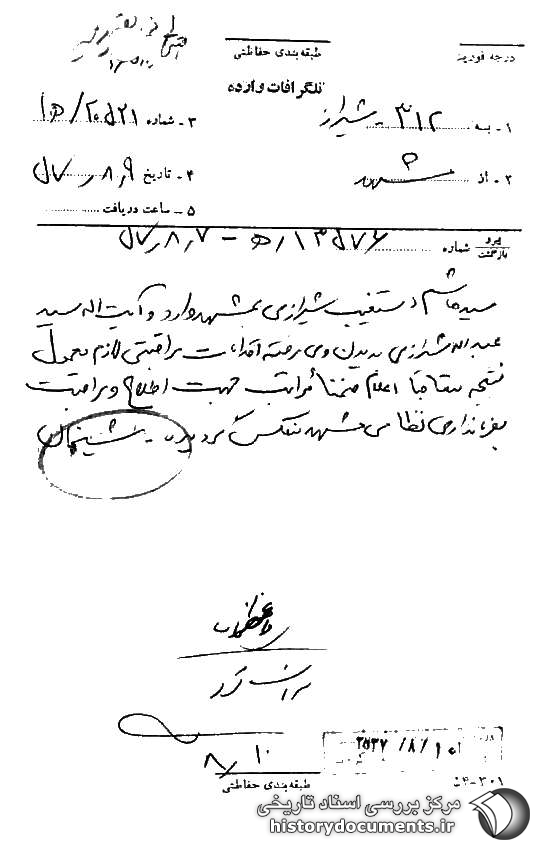 درجه فوریت
طبقه‌بندی حفاظتی
تلگرافات وارده
۱ - به ۳۱۲ - شیراز
۳ - شماره ۲۰۵۲۱/ه‍ ۱
۲ - از مشهد
۴ - تاریخ ۵۷/۸/۹
۵ - ساعت دریافت
پیرو
بازگشت
شماره ۱۳۵۷۶/ه‍ ۱ - ۵۷/۸/۷
سید هاشم دستغیب شیرازی بمشهد وارد و آیت اله سید
عبداله شیرازی بدیدن وی رفته اقدامات مراقبتی لازم معمول
نتیجه متعاقبا اعلام ضمنا مراتب جهت اطلاع و مراقبت
بفرمانداری نظامی مشهد منعکس گردیده - شیخان
۸/۱۰
۲۵۳۷/۸/۱۰
طبقه‌بندی حفاظتی
۵۴-۳۰۱
مرکز بررسی اسناد تاریخی
historydocuments.ir